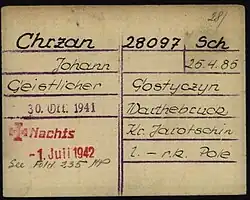 Chrzan 28097 Sch
Johann 25.4.85
Geistlicher Gostyczyn
30. Okt. 1941 Warthebruck
Nachts Kr. Jarotschin
-1. Juli 1942 l. - r.k. Pole